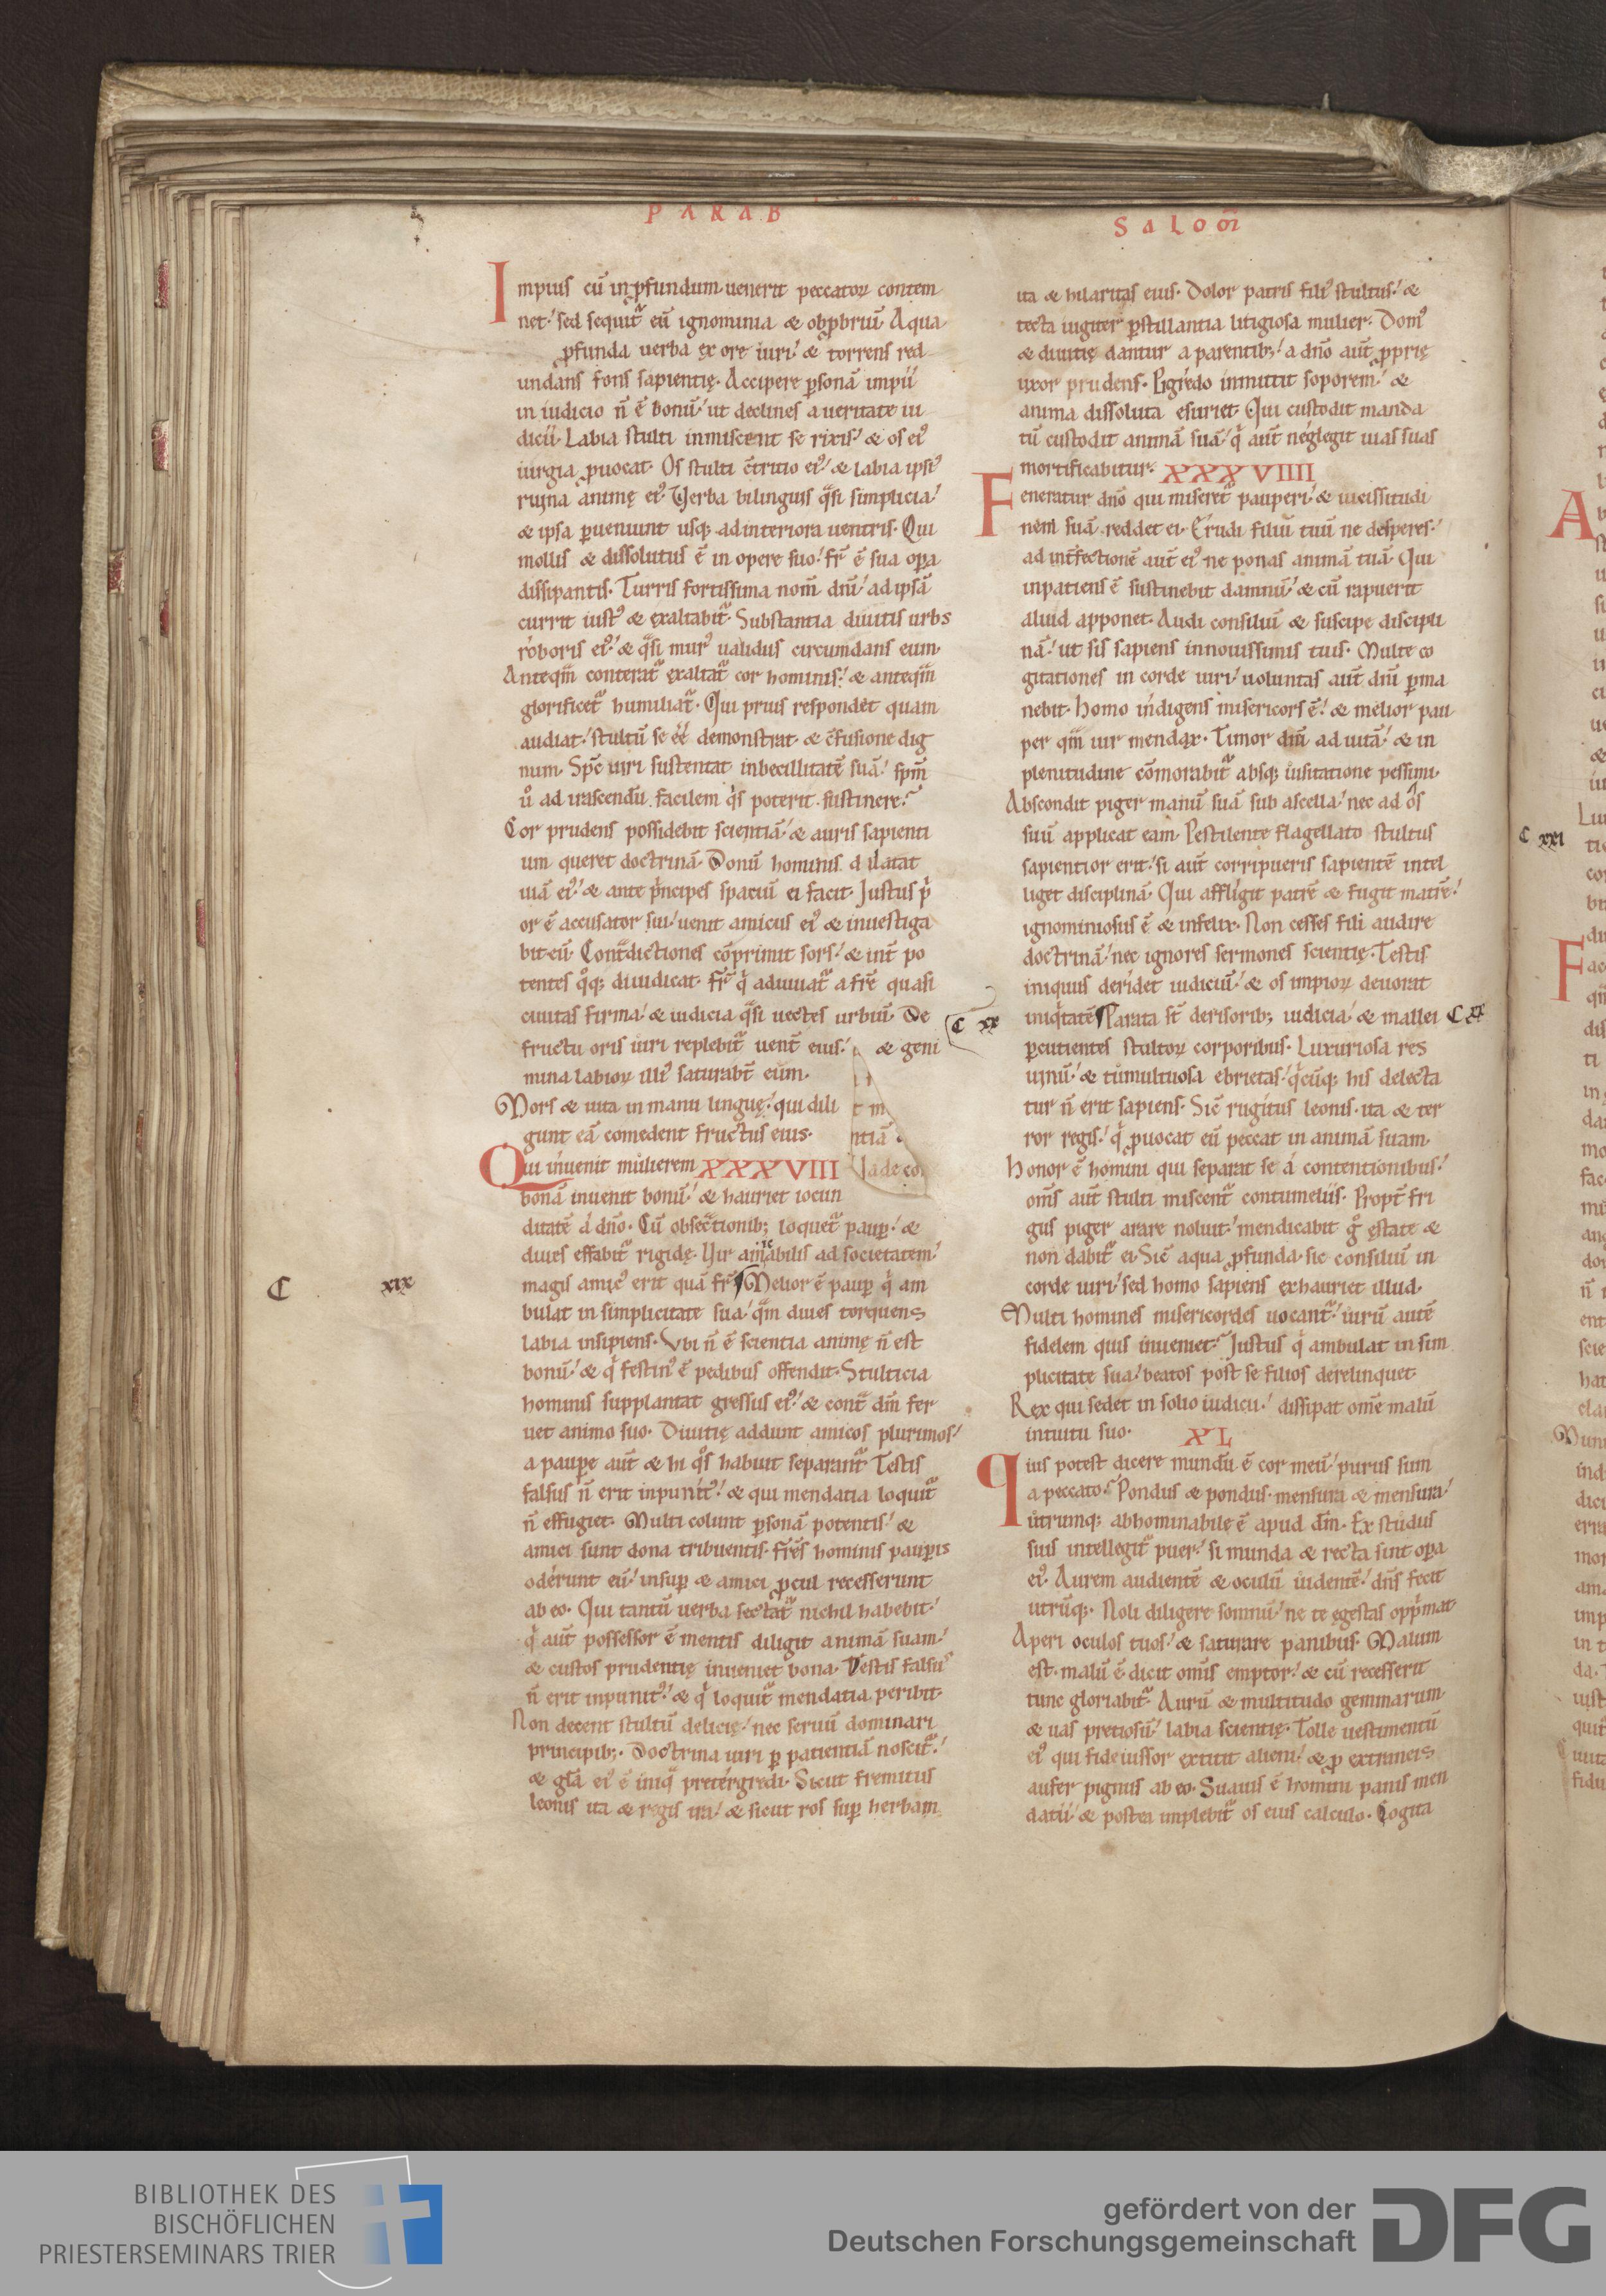 PARAB
SALOM̄
Impius cū in ꝓfundum uenerit peccatoꝝ contem
net. sed sequit᷑ eū ignominia & obꝓbriū. Aqua
ꝓfunda uerba ex ore uiri. & torrens red
undans fons sapientię. Accipere ꝑsonā impii
in iudicio n̄ ē bonū. ut declines a ueritate iu
dicii. Labia stulti inmiscent se rixis. & os eiꝰ
iurgia ꝓuocat. Os stulti c̄tritio eiꝰ. & labia ipsiꝰ
ruina animę eiꝰ. Verba bilinguis q̄si simplicia.
& ipsa ꝑueniunt usq; ad interiora uentris. Qui
mollis & dissolutus ē in opere suo. fr̄ ē sua oꝑa
dissipantis. Turris fortissima nom̄ dnī. ad ipsā
currit iustꝰ & exaltabit᷑. Substantia diuitis urbs
roboris eiꝰ. & q̄si murꝰ ualidus circumdans eum.
Anteqm̄ conterat᷑ exaltat᷑ cor hominis. & anteqm̄
glorificet᷑ humiliat᷑. Qui prius respondet quam
audiat. stultū se eē demonstrat & c̄fusione dig
num. Spc̄ uiri sustentat inbecillitatē suā. spm̄
ů ad irascendū facilem qͥs poterit sustinere?
Cor prudens possidebit scientiā. & auris sapienti
um queret doctrinā. Donū hominis dilatat
uiā eiꝰ. & ante pͥncipes spatiū ei facit. Justus pͥ
or ē accusator sui. uenit amicus eiꝰ & inuestiga
bit eū. Contᷓdictiones cōprimit sors. & int̄ po
tentes qͦq; diiudicat. Fr̄ qͥ adiuuat᷑ a frē quasi
ciuitas firma. & iudicia q̄si uectes urbiū. De
fructu oris uiri replebit᷑ uent̄ eius. & geni
mina labioꝝ illiꝰ saturabt̄ eum.
Mors & uita in manu linguę. qui dili
gunt eā comedent fructus eius.
Qui inuenit mulierem XXXVIII
bonā inuenit bonū. & hauriet iocun
ditatē a dnō. Cū obsecᷓtionib; loquet᷑ pauꝑ. &
diues effabit᷑ rigide. Vir amicabilis ad societatem.
magis amicꝰ erit quā fr̄. Melior ē pauꝑ qͥ am
C xix
bulat in simplicitate sua. qm̄ diues torquens
labia insipiens. Vbi n̄ ē scientia animę n̄ est
bonū. & qͥ festinꝰ ē pedibus offendit. Stulticia
hominis supplantat gressus eiꝰ. & contᷓ dm̄ fer
uet animo suo. Diuitię addunt amicos plurimos.
a pauꝑe aut̄ & hi qͦs habuit separant᷑. Testis
falsus n̄ erit inpunitꝰ. & qui mendatia loquit᷑
n̄ effugiet. Multi colunt ꝑsonā potentis. &
amici sunt dona tribuentis. Frēs hominis pauꝑis
oderunt eū. insuꝑ & amici ꝓcul recesserunt
ab eo. Qui tantū uerba sectat᷑ nichil habebit.
qͥ aut̄ possessor ē mentis diligit animā suam.
& custos prudentię inueniet bona. Testis falsus
n̄ erit inpunitꝰ. & qͥ loquit᷑ mendatia peribit.
Non decent stultū delicię. nec seruū dominari
principib;. Doctrina uiri ꝑ patientiā noscit᷑.
& glā eiꝰ ē iniqᷓ pretergredi. Sicut fremitus
leonis ita & regis ira. & sicut ros suꝑ herbam
ita & hilaritas eius. Dolor patris filiꝰ stultus. &
tecta iugiter ꝑstillantia litigiosa mulier. Domꝰ
& diuitię dantur a parentib;. a dnō aut̄ ꝓprię
uxor prudens. Pigredo inmittit soporem. &
anima dissoluta esuriet. Qui custodit manda
tū custodit animā suā. qͥ aut̄ neglegit uias suas
mortificabitur. XXXVIIII
Feneratur dnō qui miseret᷑ pauperi. & uicissitudi
nem suā reddet ei. Erudi filiū tuū ne desperes.
ad int̄fectionē aut̄ eiꝰ ne ponas animā tuā. Qui
inpatiens ē sustinebit damnū. & cū rapuerit
aliud apponet. Audi consiliū & suscipe discipli
nā. ut sis sapiens in nouissimis tuis. Multe co
gitationes in corde uiri. uoluntas aut̄ dnī ꝑma
nebit. Homo indigens misericors ē. & melior pau
per qm̄ uir mendax. Timor dnī ad uitā. & in
plenitudine cōmorabit᷑ absq; uisitatione pessimi.
Abscondit piger manū suā sub ascella. nec ad os
suū applicat eam. Pestilente flagellato stultus
sapientior erit. si aut̄ corripueris sapientē intel
liget disciplinā. Qui affligit patrē & fugit matrē.
ignominiosus ē & infelix. Non cesses fili audire
doctrinā. nec ignores sermones scientię. Testis
iniquus deridet iudiciū. & os impioꝝ deuorat
C xx iniqͥtatē. Parata st̄ derisorib; iudicia. & mallei C xx
ꝑcutientes stultoꝝ corporibus. Luxuriosa res
uinū. & tumultuosa ebrietas. qͥcūq; his delecta
tur n̄ erit sapiens. Sic̄ rugitus leonis. ita & ter
ror regis. qͥ ꝓuocat eū peccat in animā suam.
Honor ē homini qui separat se a contentionibus.
om̄s aut̄ stulti miscent᷑ contumeliis. Propt̄ fri
gus piger arare noluit. mendicabit gͦ ęstate &
non dabit᷑ ei. Sic̄ aqua ꝓfunda. sic consiliū in
corde uiri. sed homo sapiens exhauriet illud.
Multi homines misericordes uocant᷑. uirū autē
fidelem quis inueniet? Justus qͥ ambulat in sim
plicitate sua. beatos post se filios derelinquet.
Rex qui sedet in solio iudicii. dissipat om̄e malū
intuitu suo. XL
Quis potest dicere mundū ē cor meū. purus sum
a peccato? Pondus & pondus. mensura & mensura.
utrumq; abhominabile ē apud dm̄. Ex studiis
suis intellegit᷑ puer. si munda & recta sint oꝑa
eiꝰ. Aurem audientē & oculū uidentē. dn̄s fecit
utrūq;. Noli diligere somnū. ne te egestas oppͥmat.
Aperi oculos tuos. & saturare panibus. Malum
est. malū ē dicit om̄is emptor. & cū recesserit
tunc gloriabit᷑. Aurū & multitudo gemmarum.
& uas pretiosū. labia scientię. Tolle uestimentū
eiꝰ qui fideiussor extitit alieni. & ꝓ extraneis
aufer pignus ab eo. Suauis ē homini panis men
datii. & postea implebit᷑ os eius calculo. Cogita
C xxi
BIBLIOTHEK DES
BISCHÖFLICHEN
PRIESTERSEMINARS TRIER
gefördert von der
Deutschen Forschungsgemeinschaft
DFG